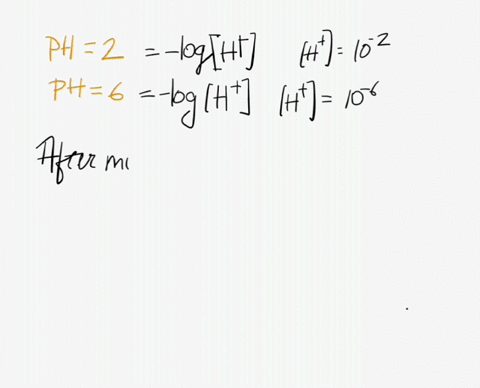 PH = 2 = -log[H⁺] [H⁺] = 10⁻²
PH = 6 = -log[H⁺] [H⁺] = 10⁻⁶
After m